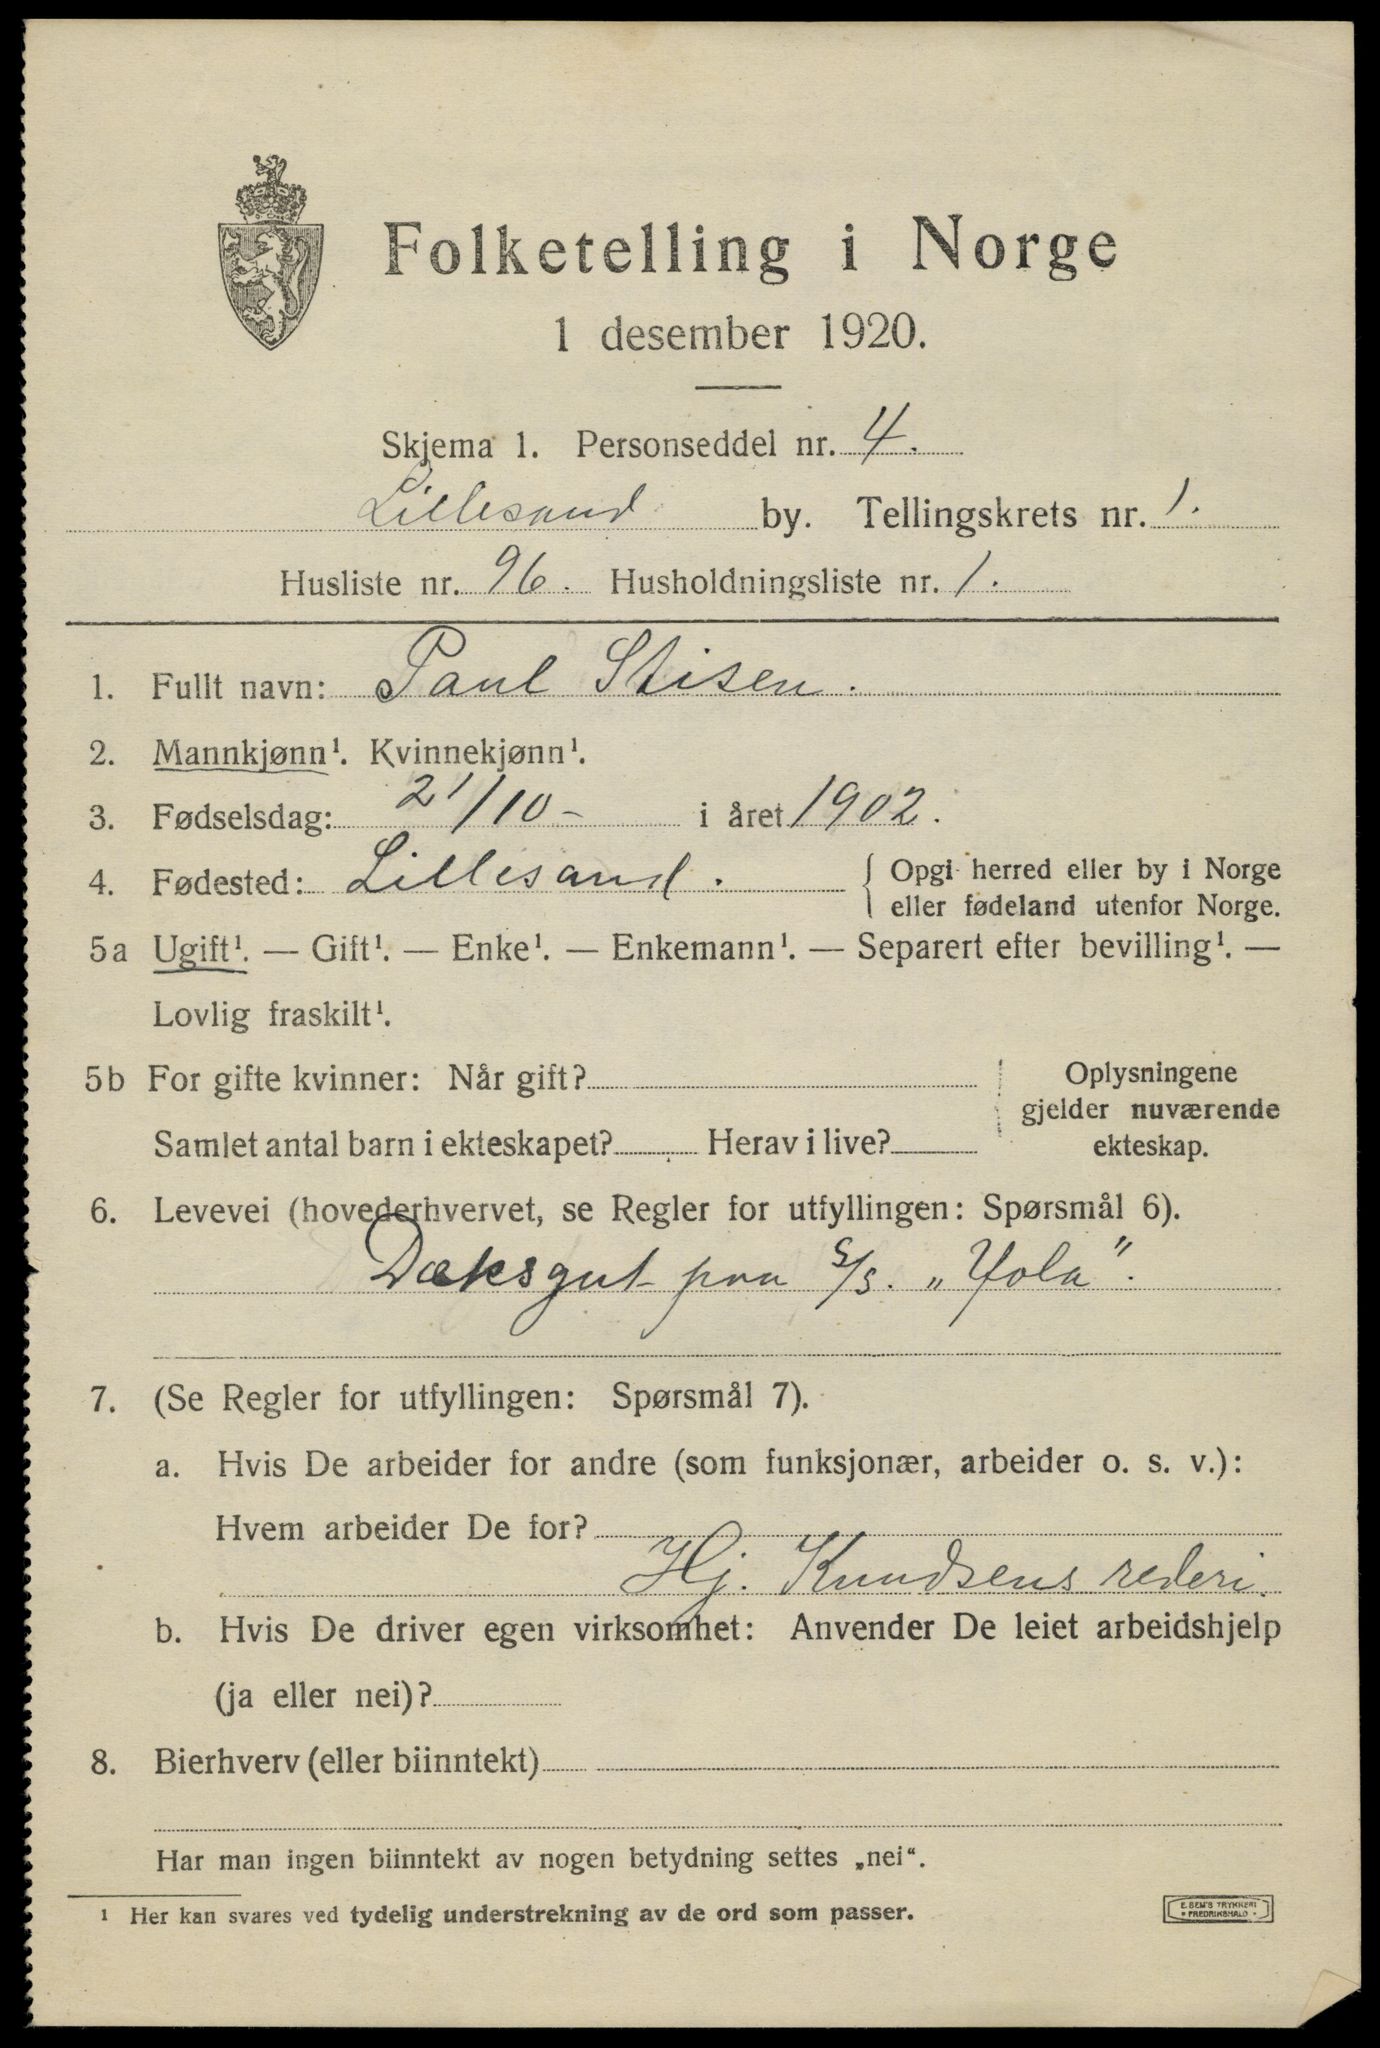 Folketelling i Norge
1 desember 1920.
Skjema 1. Personseddel nr. 4.
Lillesand by. Tellingskrets nr. 1.
Husliste nr. 96. Husholdningsliste nr. 1.
1. Fullt navn: Paul Stisen.
2. Mannkjønn¹. Kvinnekjønn¹.
3. Fødselsdag: 21/10- i året 1902.
4. Fødested: Lillesand. { Opgi herred eller by i Norge
eller fødeland utenfor Norge.
5a Ugift¹. — Gift¹. — Enke¹. — Enkemann¹. — Separert efter bevilling¹. —
Lovlig fraskilt¹.
5b For gifte kvinner: Når gift? Oplysningene
gjelder nuværende
Samlet antal barn i ekteskapet? Herav i live? ekteskap.
6. Levevei (hovederhvervet, se Regler for utfyllingen: Spørsmål 6).
Dæksgut paa S/S. „Yola".
7. (Se Regler for utfyllingen: Spørsmål 7).
a. Hvis De arbeider for andre (som funksjonær, arbeider o. s. v.):
Hvem arbeider De for?
Hj. Knudsens rederi.
b. Hvis De driver egen virksomhet: Anvender De leiet arbeidshjelp
(ja eller nei)?
8. Bierhverv (eller biinntekt)
Har man ingen biinntekt av nogen betydning settes „nei“.
¹ Her kan svares ved tydelig understrekning av de ord som passer.
E. SEM'S TRYKKERI
• FREDRIKSHALD •